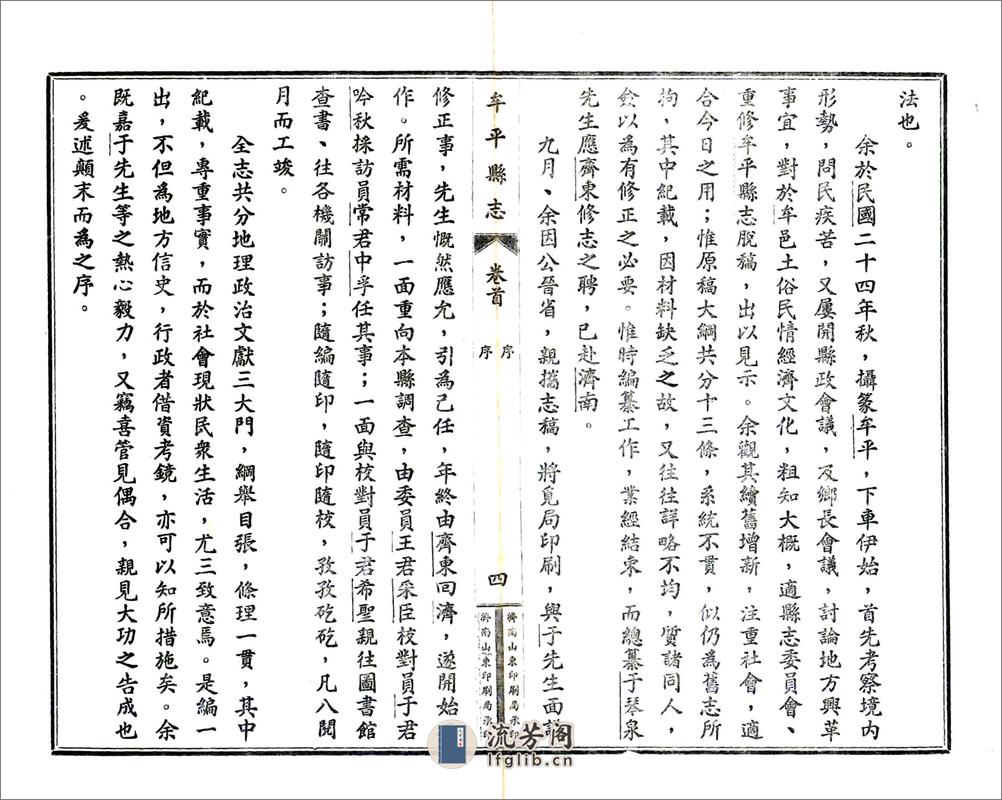 法也。
余於民國二十四年秋，攝篆牟平，下車伊始，首先考察境內
形勢，問民疾苦，又屢開縣政會議，及鄉長會議，討論地方興革
事宜，對於牟邑土俗民情經濟文化，粗知大概，適縣志委員會、
重修牟平縣志脫稿，出以見示。余觀其續舊增新，注重社會，適
合今日之用；惟原稿大綱共分十三條，系統不貫，似仍為舊志所
拘，其中紀載，因材料缺乏之故，又往往詳略不均，質諸同人，
僉以為有修正之必要。惟時編纂工作，業經結束，而總纂于琴泉
先生應齊東修志之聘，已赴濟南。
九月、余因公晉省，親攜志稿，將覓局印刷，與于先生面談
牟平縣志
卷首
序
序
四
濟南山東印刷局承印
濟南山東印刷局承
修正事，先生慨然應允，引為己任，年終由齊東回濟，遂開始
作。所需材料，一面重向本縣調查，由委員王君采臣校對員于君
吟秋採訪員常君中孚任其事；一面與校對員于君希聖親往圖書館
查書、往各機關訪事；隨編隨印，隨印隨校，孜孜矻矻，凡八閱
月而工竣。
全志共分地理政治文獻三大門，綱舉目張，條理一貫，其中
紀載，專重事實，而於社會現狀民衆生活，尤三致意焉。是編一
出，不但為地方信史，行政者借資考鏡，亦可以知所措施矣。余
既嘉于先生等之熱心毅力，又竊喜管見偶合，親見大功之告成也
。爰述顛末而為之序。
流芳阁
lfglib.cn